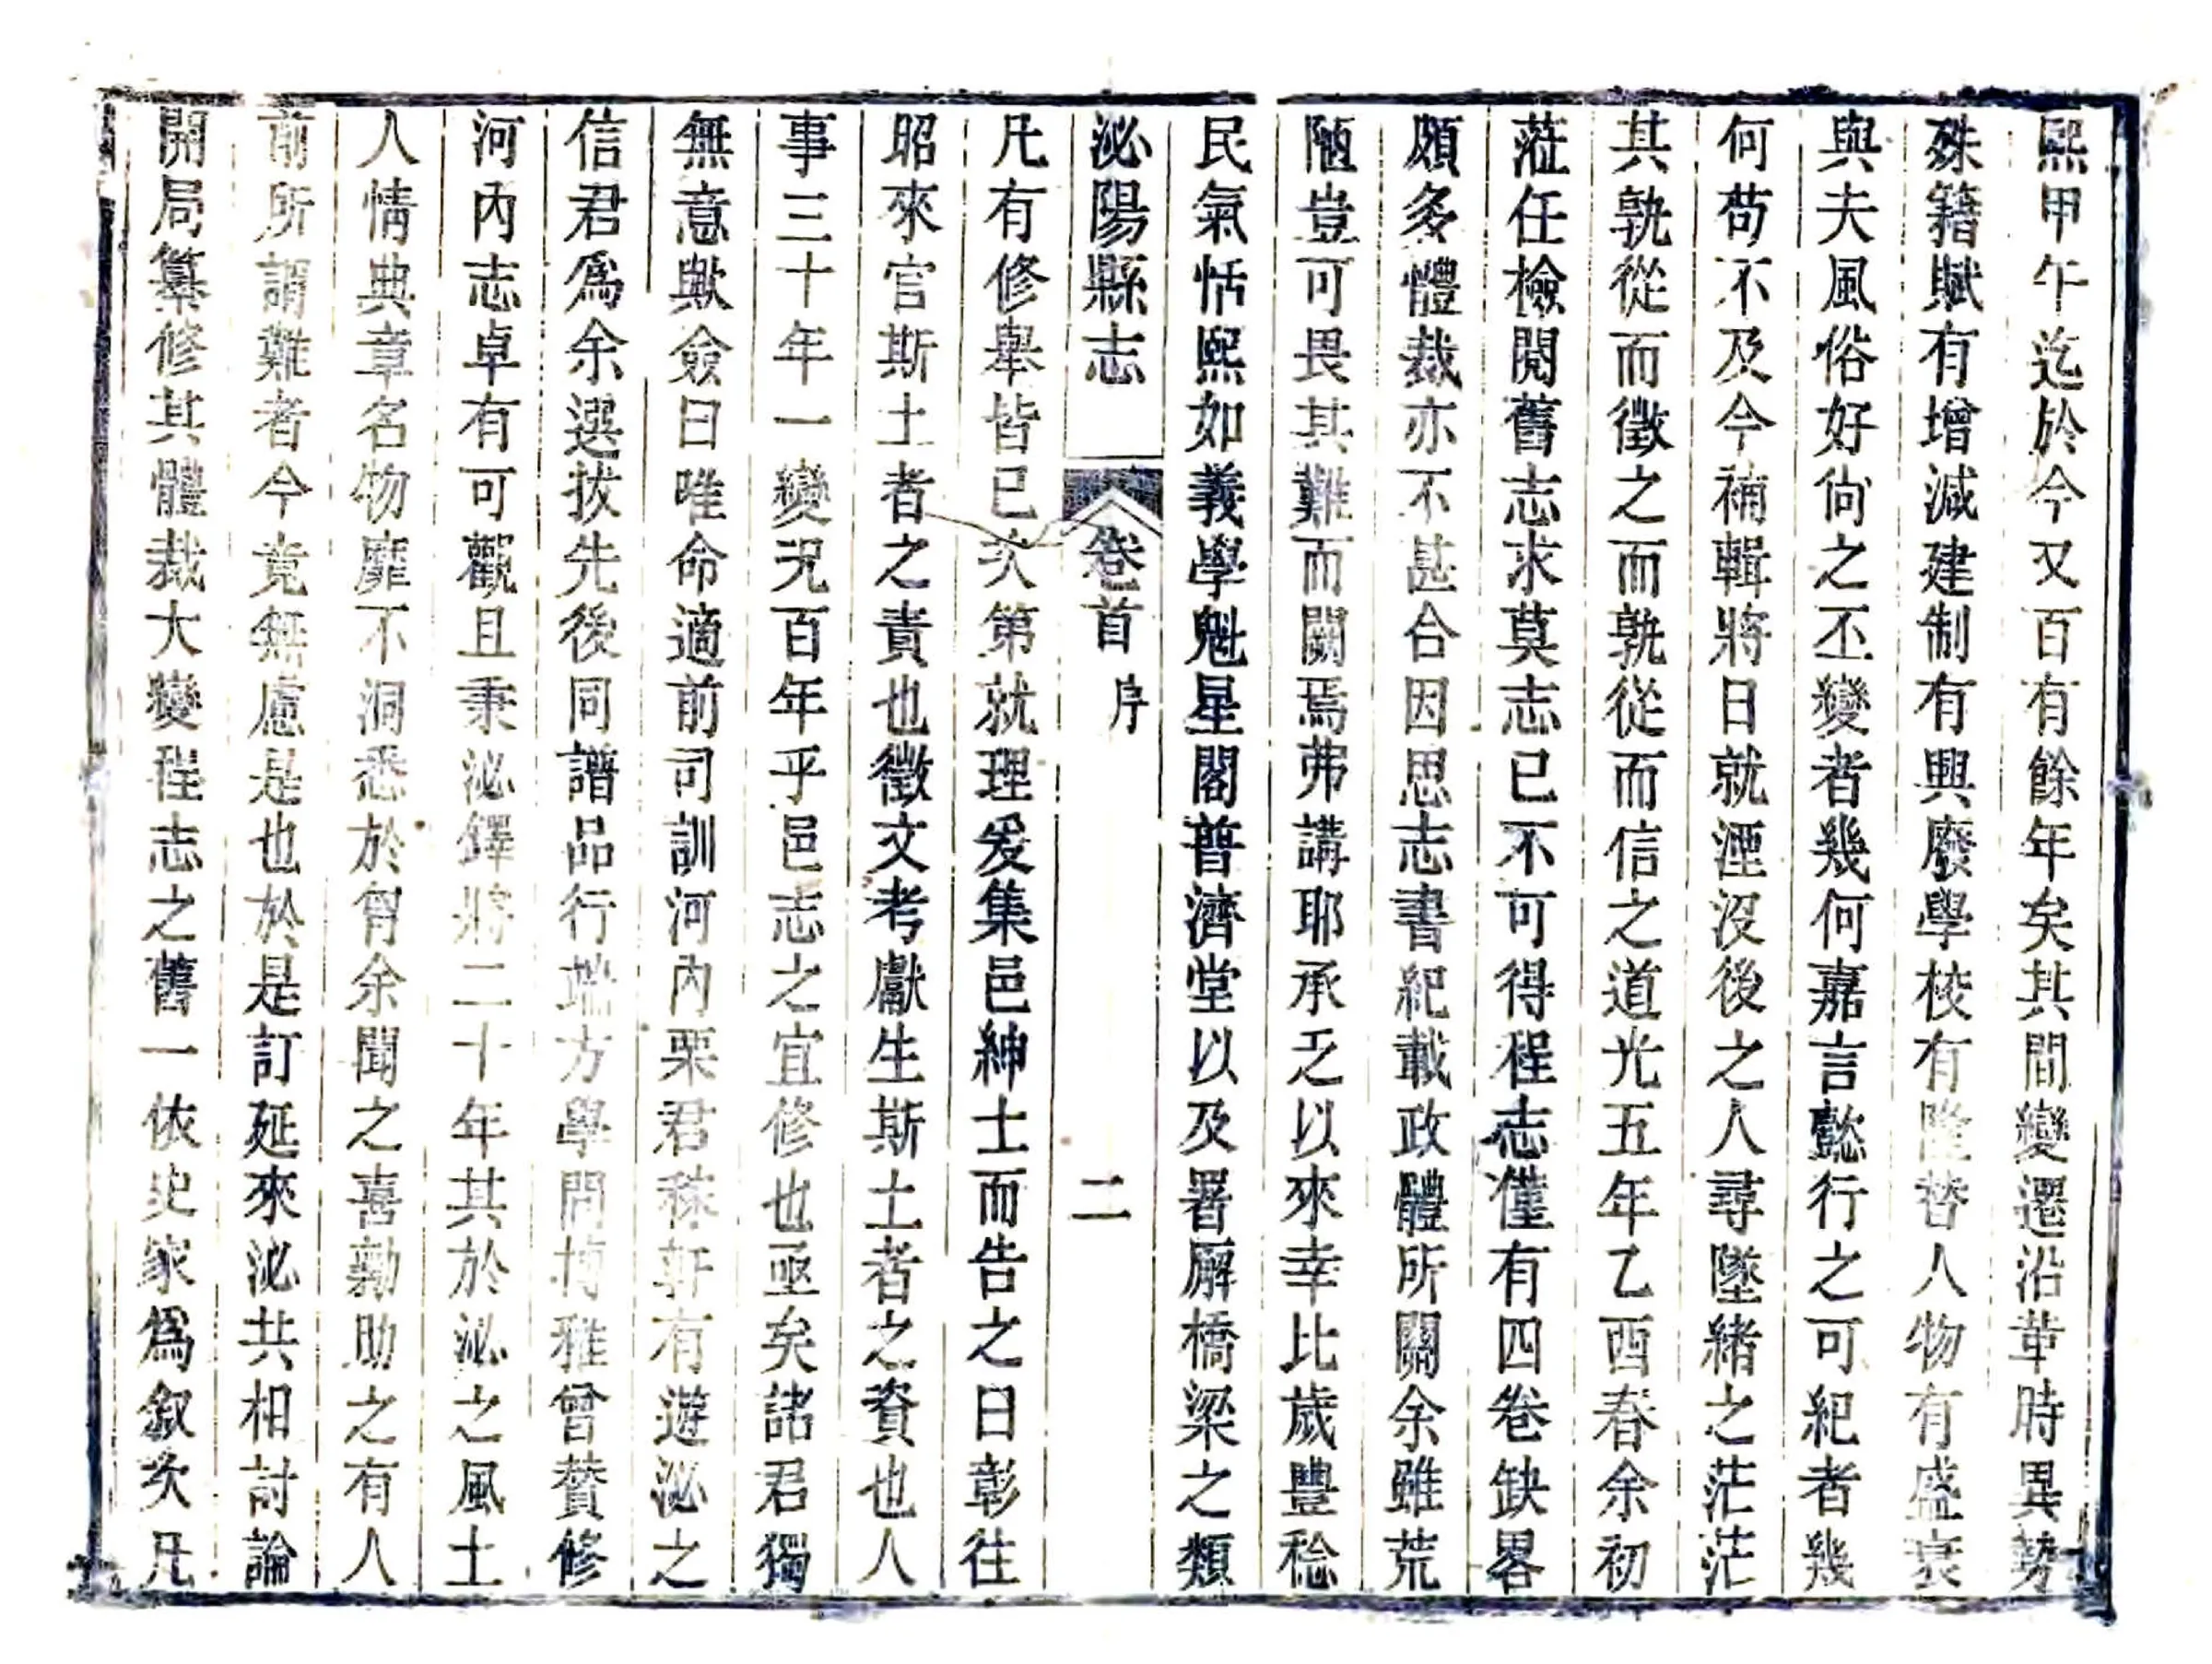 熙甲午迄於今又百有餘年矣其間變遷沿革時異勢
殊籍賦有增減建制有興廢學校有隆替人物有盛衰
與夫風俗好尙之丕變者幾何嘉言懿行之可紀者幾
何苟不及今補輯將日就湮沒後之人尋墜緒之茫茫
其孰從而徵之而孰從而信之道光五年乙酉春余初
蒞任檢閱舊志求莫志已不可得程志僅有四卷缺畧
頗多體裁亦不甚合因思志書紀載政體所關余雖荒
陋豈可畏其難而闕焉弗講耶承乏以來幸比歲豐稔
民氣恬熙如義學魁星閣普濟堂以及署廨橋梁之類
泌陽縣志 卷首 序 二
凡有修舉皆已次第就理爰集邑紳士而告之曰彰往
昭來官斯土者之責也徵文考獻生斯土者之資也人
事三十年一變况百年乎邑志之宜修也亟矣諸君獨
無意歟僉曰唯命適前司訓河內栗君稼軒有遊泌之
信君爲余選拔先後同譜品行端方學問博雅曾贊修
河內志卓有可觀且秉泌鐸將二十年其於泌之風土
人情典章名物靡不洞悉於胷余聞之喜勷助之有人
前所謂難者今竟無慮是也於是訂延來泌共相討論
開局纂修其體裁大變程志之舊一依史家爲叙次凡